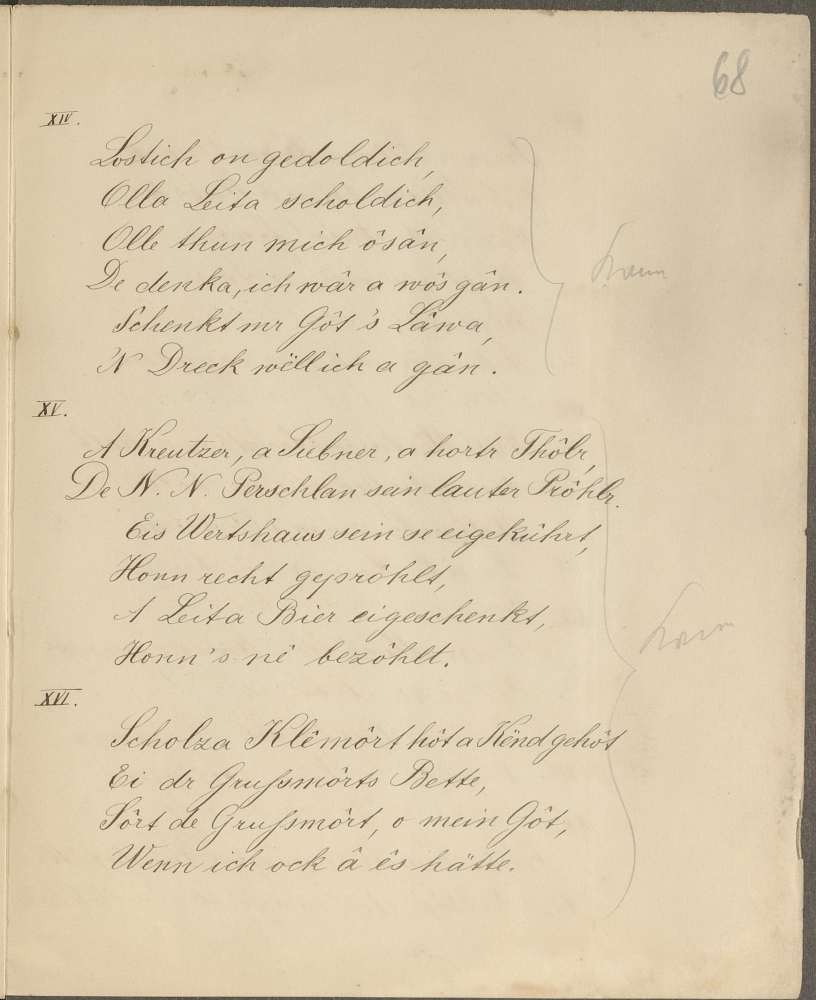 68
XIV.
Lostich on gedoldich,
Olla Leita scholdich,
Olle thun mich ôsân,
De denka, ich wâr a wôs gân.
Schenkt mr Gôt 's Lâwa,
'N Dreck wëll ich a gân.
XV.
A Kreutzer, a Siebner, a hortr Thôlr,
De N. N. Perschlan sein lauter Prôhlr.
Eis Wertshaus sein se eigekührt,
Honn recht geprôhlt,
A Leita Bier eigeschenkt,
Honn's nê bezôhlt.
XVI.
Scholza Klêmôrt hôt a Kënd gehôt
Ei dr Grußmôrts Bette,
Sôrt de Grußmôrt, o mein Gôt,
Wenn ich ock â ês hätte.